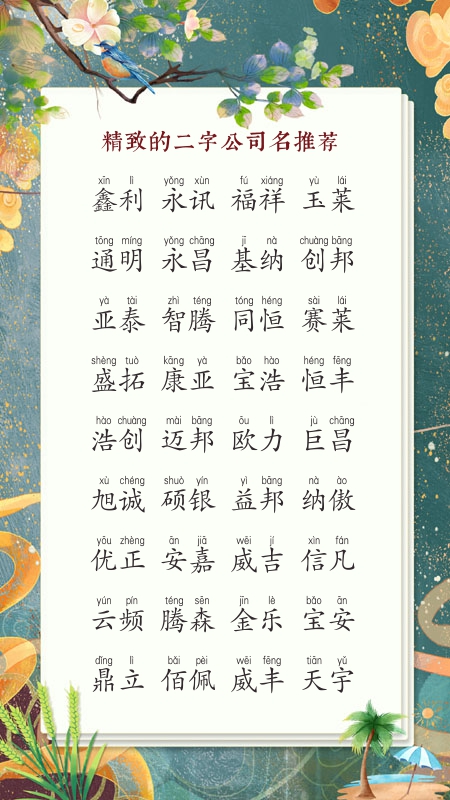 精致的二字公司名推荐
xīn lì yǒng xùn fú xiáng yù lái
鑫利 永讯 福祥 玉莱
tōng míng yǒng chāng jī nà chuàng bāng
通明 永昌 基纳 创邦
yà tài zhì téng tóng héng sài lái
亚泰 智腾 同恒 赛莱
shèng tuò kāng yà bǎo hào héng fēng
盛拓 康亚 宝浩 恒丰
hào chuàng mài bāng ōu lì jù chāng
浩创 迈邦 欧力 巨昌
xù chéng shuò yín yì bāng nà ào
旭诚 硕银 益邦 纳傲
yōu zhèng ān jiā wēi jí xìn fán
优正 安嘉 威吉 信凡
yún pín téng sēn jīn lè bǎo ān
云频 腾森 金乐 宝安
dǐng lì bǎi pèi wēi fēng tiān yǔ
鼎立 佰佩 威丰 天宇